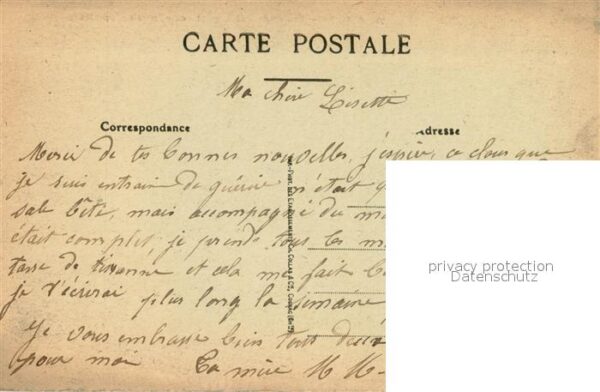 CARTE POSTALE
Ma chère Lisette
Correspondance
Adresse
Merci de tes bonnes nouvelles, j'espère, ce
je suis entrain de guérir n'était
sale bête, mais accompagné du
était complet, je prends tous les
tasse de tisanne et cela me fait
je t'écrirai plus long la semaine
Je vous embrasse bien tous deux
pour moi Ta mère M M-
privacy protection
Datenschutz